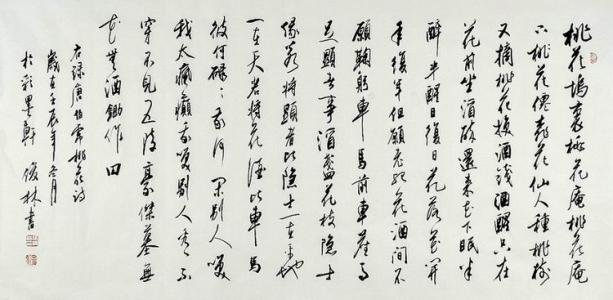 桃花塢裏桃花庵桃花庵
下桃花僊桃花仙人種桃樹
又摘桃花換酒錢酒醒只在
花前坐酒醉還來花下眠半
醉半醒日復日花落花開
年復年但願老死花酒間不
願鞠躬車馬前車塵馬
足顯者事酒盞花枝隱士
緣若將顯者比隱士一在平地
一在天若將花酒比車馬
彼何碌々我何閑別人笑
我太瘋癲我笑別人看不
穿不見五陵豪傑墓無
花無酒鋤作田
右錄唐伯虎桃花詩
歲在壬辰年冬月
於彩墨軒 俊林書